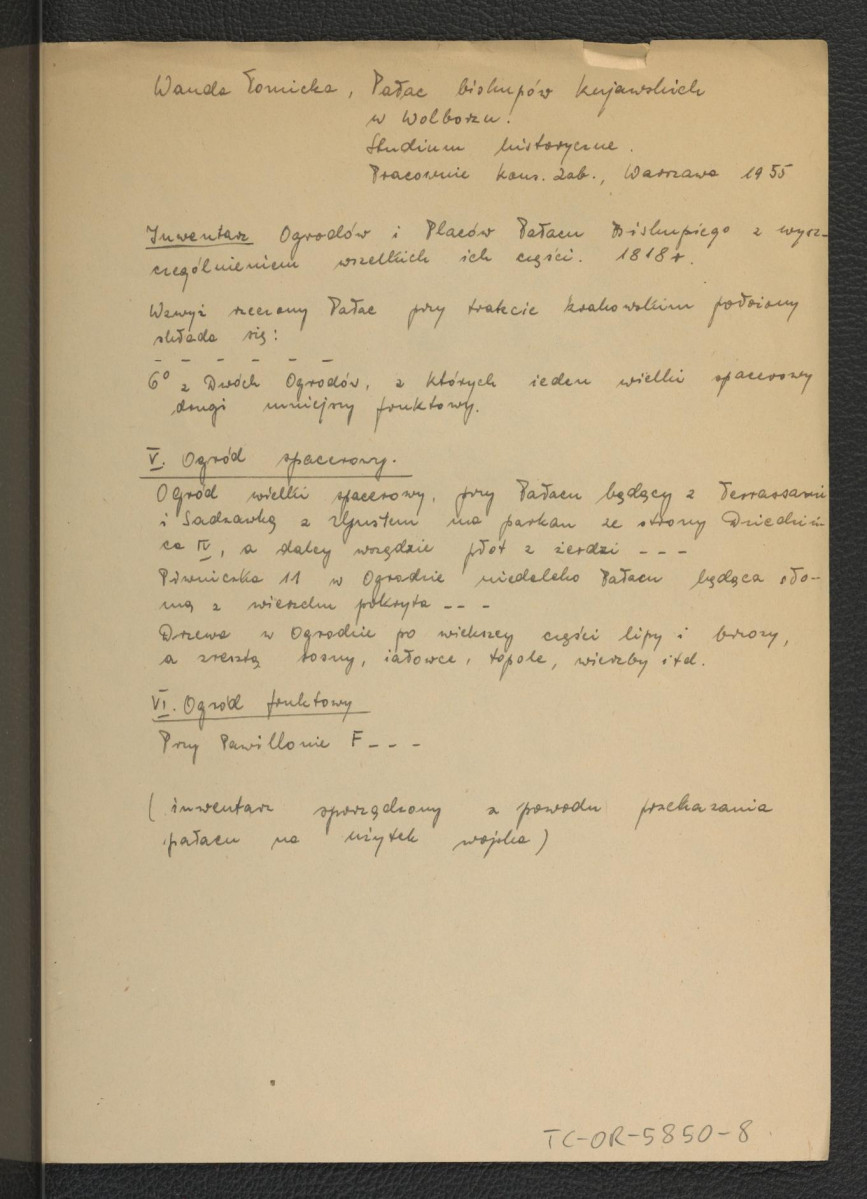 Wanda Łomicka, Pałac biskupów kujawskich
w Wolborzu.
Studium historyczne.
Pracownie kons. zab., Warszawa 1955
Inwentarz Ogrodów i Placów Pałacu Biskupiego z wysz-
czególnieniem wszelkich ich części. 1818 r.
Wzwyż rzeczony Pałac przy trakcie krakowskim położony
składa się:
– – – – – –
6° z Dwóch Ogrodów, z których ieden wielki spacerowy
drugi mniejszy fruktowy.
V. Ogród spacerowy.
Ogród wielki spacerowy, przy Pałacu będący z Terrassami
i Sadzawką z ma parkan ze strony Dziedziń-
ca IV, a daley wszędzie płot z żerdzi – – –
Piwniczka 11 w Ogrodzie niedaleko Pałacu będąca sło-
mą z wierzchu pokryta – – –
Drzewa w Ogrodzie po większey części lipy i brzozy,
a zresztą sosny, iałowce, topole, wierzby itd.
VI. Ogród fruktowy
Przy Pawillonie F – – –
(inwentarz sporządzony z powodu przekazania
pałacu na użytek wojska)
TC-OR-5850-8